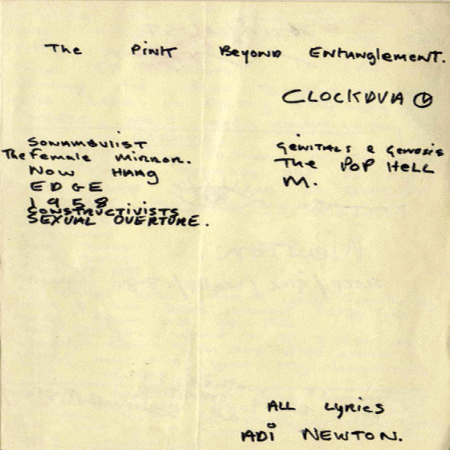 The Pink Beyond Entanglement.
CLOCKDVA
SONAMBULIST
The Female Mirror.
NOW HANG
EDGE
1958
CONSTRUCTIVISTS
SEXUAL OVERTURE.
GENITALS & GENOSIS
The POP HELL
M.
ALL Lyrics
ADI NEWTON.